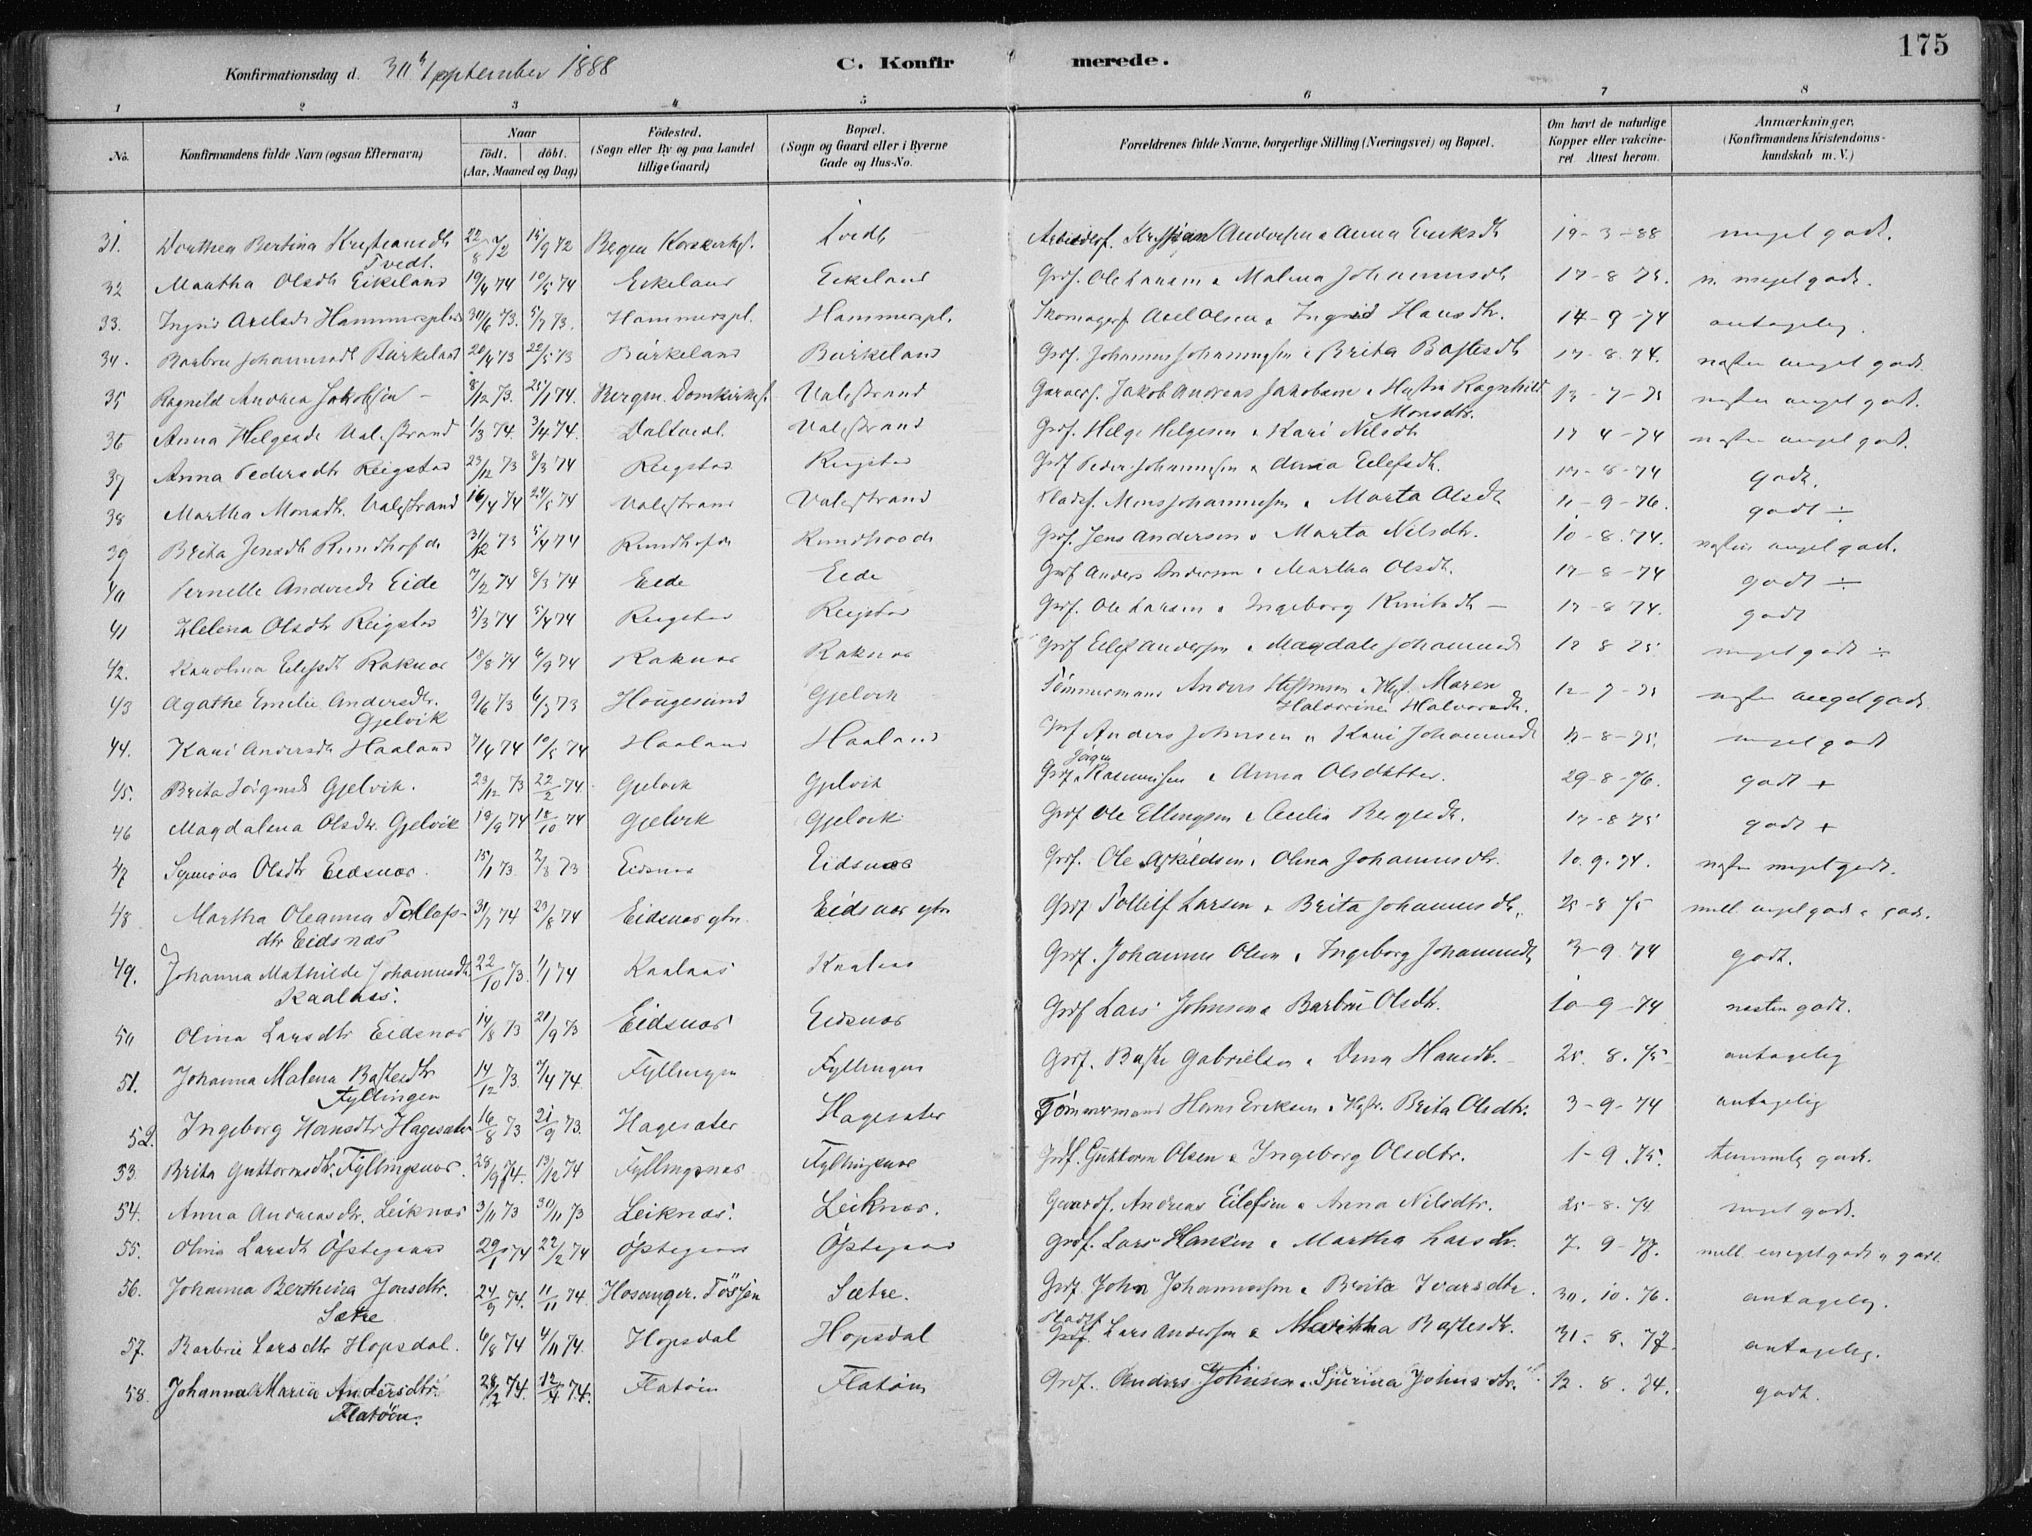 175
Konfirmationsdag d. 30te September 1888 C. Konfirmerede.
1 2 3 4 5 6 7 8
No. Konfirmandens fulde Navn (ogsaa Efternavn) Naar födt. döbt. (Aar, Maaned og Dag) Födested. (Sogn eller By og paa Landet tillige Gaard) Bopæl. (Sogn og Gaard eller i Byerne Gade og Hus-No. Forældrenes fulde Navne, borgerlige Stilling (Næringsvei) og Bopæl. Om havt de naturlige Kopper eller vakcineret Attest herom. Anmærkninger, (Konfirmandens Kristendomskundskab m. V.)
31. Dorthea Bertina Kristiansdtr 22/8 72 15/9 72 Bergen Korskirkes. Tvedt Arbeiderf. Kristian Andersen & Anna Eriksdtr 19-3-88 meget godt.
Tvedt.
32 Martha Olsdtr Eikeland 19/4 74 10/5 74 Eikeland Eikeland Grdf. Ole Larsen & Malena Johannesdtr 17-8 75. n. meget godt.
33. Ingrid Axelsdtr Hammerspl. 30/6 73. 5/7 73. Hammerspl. Hammerspl. Skomagerf. Axel Olsen & Ingrid Hansdtr. 14-9-74 antagelig.
34. Barbru Johannesdtr Birkeland 20/4 73 22/5 73 Birkeland Birkeland Grdf. Johannes Johannesen & Brita Bastesdtr 17-8.74. næsten meget godt
35 Ragnild Andrea Jakobsen 8/12 73. 25/1 74. Bergen. Domkirkes. Valestrand Garverf. Jakob Andreas Jakobsen & Hustru Ragnhild 13-7-75 næsten meget godt.
Monsdtr.
36 Anna Helgesdtr Valestrand 1/3 74. 3/4 74. Daltvedt. Valestrand Grdf. Helge Helgesen & Kari Nilsdtr 17 4-74 næsten meget godt.
37 Anna Pedersdtr Reigstad 23/12 73 8/3 74 Reigstad Reigstad Grdf Peder Johannesen & Anna Eilefsdtr. 17-8-74 godt.
38 Martha Monsdtr. Valestrand 16/4 74 24/5 74 Valestrand Valestrand Pladsf. Mons Johannesen & Marta Olsdtr 11-9-76. godt ÷
39 Brita Jensdtr Rundhofde 31/12 73 5/4 74 Rundhofde Rundhovde Grdf. Jens Andersen & Marta Nilsdtr. 10-8.74. næsten meget godt.
40 Pernelle Andersdtr Eide 7/2 74 8/3 74 Eide Eide Grdf Anders Andersen & Martha Olsdtr. 17-8-74 godt ÷
41 Helena Olsdtr Reigstad 5/3 74 5/4 74 Reigstad Reigstad Grdf. Ole Larsen & Ingeborg Knutsdtr 17-8 74. godt
42. Karolina Eilefsdtr Raknes 18/8 74 6/9 74 Raknes Raknes Grdf Eilef Andersen & Magdale Johannesdtr 12 8 75 meget godt ÷
43 Agathe Emelie Andersdtr. 9/6 73 6/7 73 Hougesund Gjelvik Tømmermand Anders Steffensen & Hst. Maren 12-7-75 næsten meget godt
Gjelvik Halvorine Halvorsdtr.
44. Kari Andersdtr Haaland 7/4 74 10/5 74 Haaland Haaland Grdf Anders Johnsen & Kari Johannesdtr 17-8-75. meget godt
45. Brita Jörgensdtr Gjelvik. 23/12 73 22/2 74 Gjelvik Gjelvik Grdf. Jörgen Rasmussen & Anna Olsdatter. 29-8-76. godt +
46 Magdalena Olsdtr. Gjelvik 19/9 74 18/10 74 Gjelvik Gjelvik Grdf Ole Ellingsen & Cecilia Bergesdtr. 17-8 75 godt +
47 Synnöva Olsdtr Eidsnes. 15/1 73. 2/8 73 Eidsnes Eidsnes Grdf. Ole Askildsen & Olina Johannesdtr. 10.9.74. næsten meget godt.
48 Martha Oleanna Tollefs- 31/7 74 29/8 74 Eidsnes ytre Eidsnes ytre Grdf Tollelf Larsen & Brita Johannesdtr. 25-8 75 mell. meget godt & godt.
dtr Eidsnæs
49. Johanna Mathilde Johannesdtr 22/10 73. 1/1 74 Kaalaas Kaalaas Grdf. Johannes Olsen & Ingeborg Johannesdtr 3-9.74 godt.
Kaalaas.
50 Olina Larsdtr Eidsnes 14/8 73 21/9 73 Eidsnes Eidsnes Grdf Lars Johnsen & Barbru Olsdtr. 10-9-74 næsten godt.
51. Johanna Malena Bastesdtr 14/12 73. 7/4 74. Fyllingen Fyllingen Grdf. Baste Gabrielsen & Dina Hansdtr. 25.8.75 antagelig
Fyllingen
52. Ingeborg Hansdtr Hagesæter 16/8 73 21/9 73. Hagesæter Hagesæter Tömmermand Hans Eriksen & Hstr. Brita Olsdtr. 3-9.74 antagelig
53. Brita Guttormsdtr. Fyllingsnes. 28/9 74. 13/12 74 Fyllingsnes Fyllingsnes Grdf. Guttorm Olsen & Ingeborg Olsdtr. 1-9.75. temmelig godt.
54. Anna Andreasdtr. Leiknes 3/11 73 30/11 73 Leiknes. Leiknes. Gaardf. Andreas Eilefsen & Anna Nilsdtr. 25-8.74 meget godt.
55. Olina Larsdtr Östegaard 29/1 74 22/2 74 Östegaard Östegaard Grdf. Lars Hansen & Martha Larsdtr. 7.9-77. mell. meget godt & godt.
56. Johanna Berthina Jonsdtr. 24/9 74. 11/11 74. Hosanger. Tössjen Sætre. Grdf. John Johannessen & Brita Ivarsdtr. 30.10.76. antagelig.
Sætre
57. Barbru Larsdtr Hopsdal. 6/8 74 4/11 74. Hopsdal Hopsdal Pladsf. Lars Andersen & Maritha Bastesdtr. 31.8.77. antagelig.
58. Johanna Maria Andersdtr. 28/2 74. 12/4 74. Flatöen Flatöen Grdf. Anders Johnsen & Sjurina Johnsdtr. 12.8.74. godt.
Flatöen.